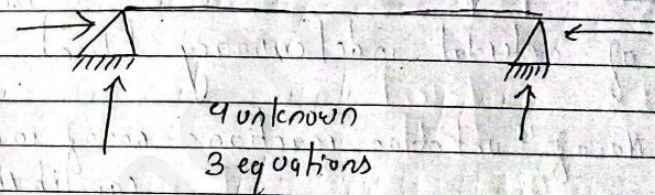 4 unknown
3 equations